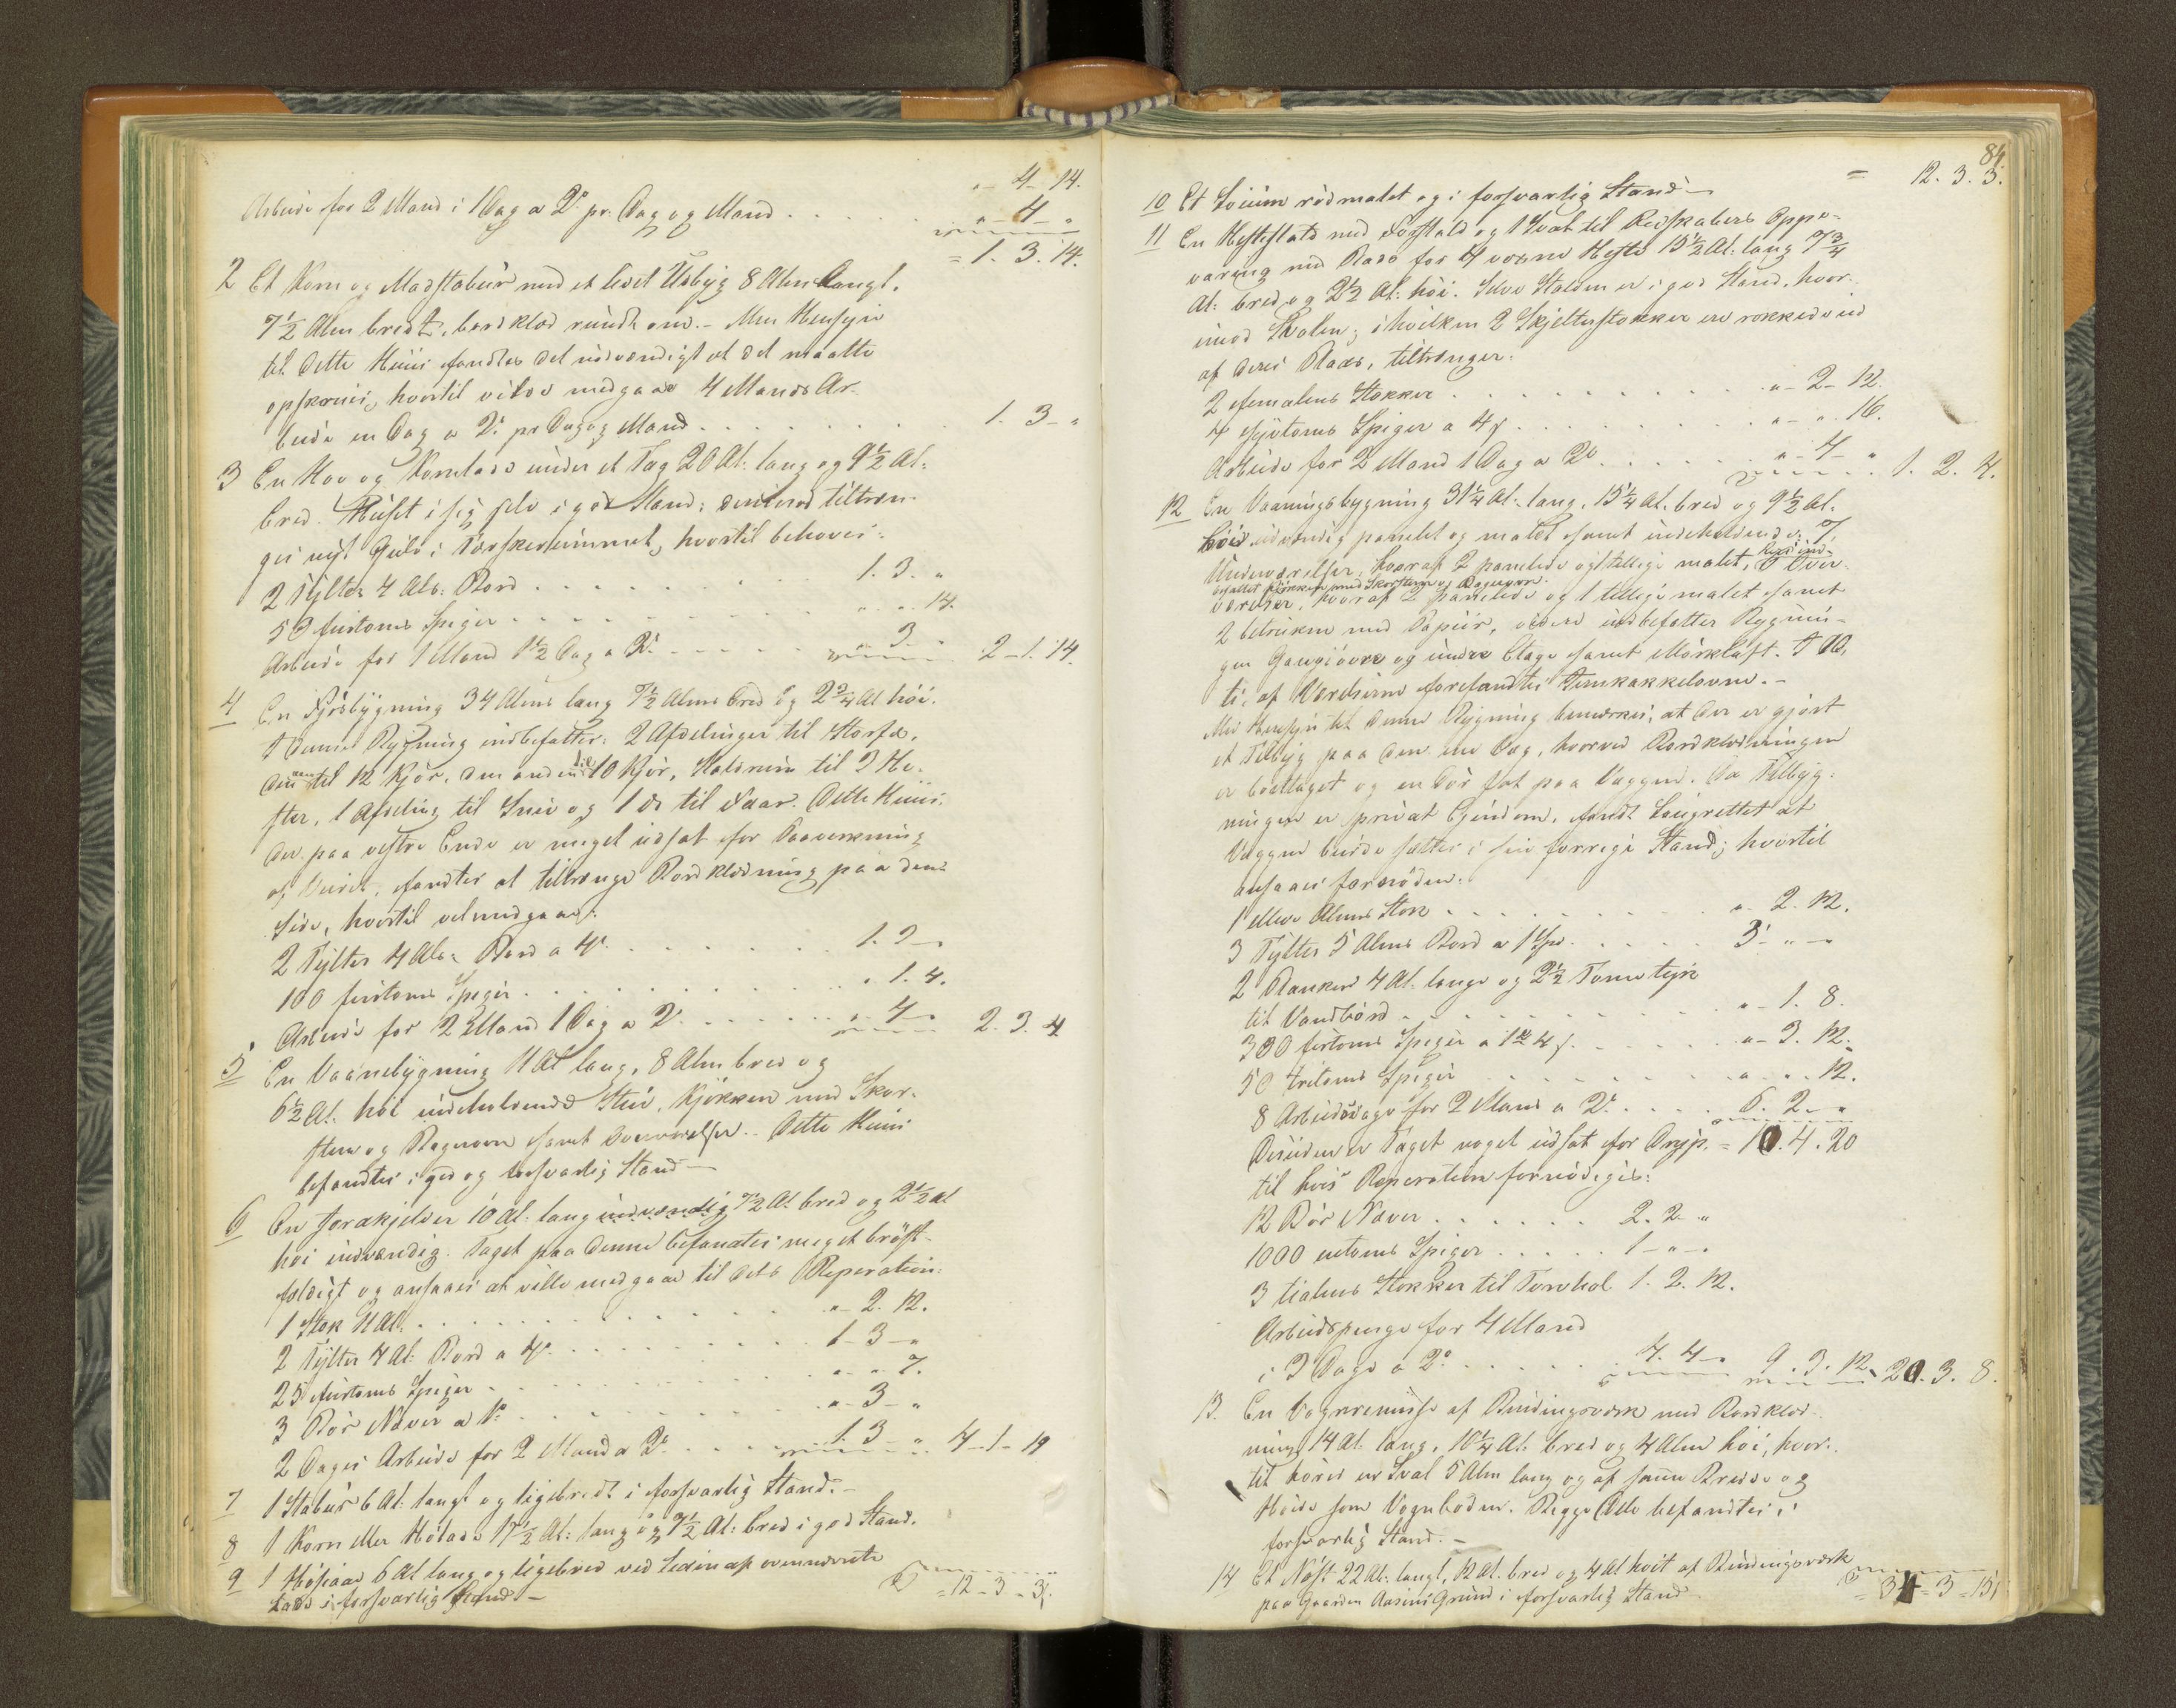 "- 4- 14.
Arbeide for 2 Mand i 1 Dag a 2º pr. Dag og Mand . . . . . . "- 4- "
= 1. 3. 14.
2 Et Korn og Madstabuur med et lidet Udbyg 8 Alen langt,
7 1/2 Alen bredt, bordklæd rundt om. - Med Hensyn
til dette Huus fandtes det nødvendigt at det maatte
opskrues, hvortil vilde medgaae 4 Mands Ar-
beide en Dag a 2º pr Dag og Mand . . . . . . . . . 1. 3- "
3 En Høe og Kornlade under et Tag 20 Al: lang og 9 1/2 Al:
bred. Huset i sig selv i god Stand; derimod tiltræn-
ges nyt Gulv i Tærskerummet, hvortil behøves:
2 Tylter 4 Al: Bord . . . . . . . . . 1. 3. "
50 fiirtoms Spiger . . . . . . . . . " " 14.
Arbeide for 1 Mand 1 1/2 Dag a 2º . . . . . " 3 " 2- 1. 14.
4 En Fjøsbygning 34 Alens lang 7 1/2 Alens bred og 2 3/4 Al høi.
I denne Bygning indbefattes: 2 Afdelinger til Storfæ,
den ene til 12 Kjør, den anden til 10 Kjør, Staldrum til 2 He-
ster, 1 Afdeling til Sviin og 1 do til Faar. Dette Huus,
der paa vestre Ende er meget udsat for Paavirkning
af Veiret, fandtes at tiltrænge Bordklædning paa denne
Side, hvortil vil medgaae:
2 Tylter 4 Al: Bord a 4º . . . . . . . . 1. 3 - "
100 fiirtoms Spiger . . . . . . . . . . . " 1. 4.
Arbeide for 2 Mand 1 Dag a 2º . . . . . . . " 4 " 2. 3. 4
5 En Vaanebygning 11 Al lang, 8 Alen bred og
6 1/2 Al: høi indeholdende Stue, Kjøkken med Skor-
steen og Bagerovn samt Overværelser. Dette Huus
befandtes i god og forsvarlig Stand -
6 En Jordkjelder 10 Al: lang indvendig 7 1/2 Al: bred og 2 1/2 Al
høi indvendig. Taget paa denne befandtes meget brøst-
fældigt og ansaaes at ville medgaae til dets Reperation:
1 Stok 11 Al: . . . . . . . . . . . . " 2. 12.
2 Tylter 4 Al: Bord a 4º . . . . . . . . . 1- 3- "
25 fiirtoms Spiger . . . . . . . . . . " - " 7.
3 Bør Næver a 1º . . . . . . . . . . . "- 3- "
2 Dages Arbeide for 2 Mand a 2º . . . . . 1. 3 " 4- 1- 19
7 1 Stabuur 6 Al: langt og ligebredt i forsvarlig Stand. -
8 1 Korn eller Hølade 17 1/2 Al: lang og 7 1/2 Al: bred i god Stand.
9 1 6 Al lang og ligebred ved Siden af ovennævnte
Lade i forsvarlig Stand -
= 12- 3- 3.
84.
= 12. 3. 3.
10 Et rødmalet og i forsvarlig Stand -
11 En Hestestald med Førstald og 1 Sval til Redskabers Oppe-
varing med Baase for 4 voxne Heste 15 1/2 Al: lang 7 3/4
Al: bred og 2 1/2 Al: høi. Selve Stalden er i god Stand, hvor-
imod Svalen, i hvilken 2 Skjeltestokker ere rokkede ud
af deres Plads, tiltrænger:
2 femalens Stokker . . . . . . . . . . . "- 2- 12.
4 Spiger a 4 s . . . . . . . . . . "- " 16.
Arbeide for 2 Mand 1 Dag a 2º . . . . . . "- 4- " 1. 2. 4.
12 En Vaaningsbygning 31 1/4 Al: lang, 15 1/4 Al: bred og 9 1/2 Al:
høi udvendig panelet og malet samt indeholdende: 7
Underværelser, hvoraf 2 panelede og 1 tillige malet, heri ind-
befattet Kjøkken med Skorsteen og Bagerovn. 5 Over-
værelser, hvoraf 2 panelede og 1 tillige malet samt
2 betrukne med Papiir, videre indbefatter Bygnin-
gen Gang i øvre og undre Etage samt Mørkloft. I
te, af Værelserne forefandtes Jernkakkelovne. -
Med Hensyn til denne Bygning bemærkes, at der er gjort
et Tilbyg paa den ene Væg, hvorved Bordklædningen
er borttaget og en Dør sat paa Væggen. Da Tilbyg-
ningen er privat Eiendom, fandt Laugrettet at
Væggen burde sættes i sin forrige Stand; hvortil
ansaaes fornøden:
1 ellve Alens Stok . . . . . . . . . . . "- 2. 12.
3 Tylter 5 Alens Bord a 1 Spd. . . . . . 3- "- "
2 Planker 4 Al: lange og 2 1/2 Tomme tyk
til Vandbord . . . . . . . . . . . . . "- 1. 8.
300 fiirtoms Spiger a 1º 4 s. . . . . . . "- 3. 12.
50 tretoms Spiger . . . . . . . . . . "- " 12.
8 Arbeidsdage for 2 Mand a 2º . . . . . 6. 2- "
Desuden er Taget noget udsat for Dryp, = 10. 4. 20
til hvis Reperation fornødiges:
12 Bør Næver . . . . . . . 2. 2 "
1000 entoms Spiger . . . . . 1- "- "
3 tialens Stokker til Torvhol 1. 2. 12.
Arbeidspenge for 4 Mand
i 3 Dage a 2º . . . . . . . . 4. 4 " 9. 3. 12. 20. 3. 8.
13. En Vognremisse af Bindingsværk med Bordklæd-
ning 14 Al: lang, 10 1/4 Al: bred og 4 Alen høi, hvor-
til hører en Sval 5 Alen lang og af samme Bredde og
Høide som Vognboden. Begge Dele befandtes i
forsvarlig Stand. -
14 Et Nøst 22 Al: langt, 12 Al: bred og 4 Al høit af Bindingsværk
paa Gaarden Grund i forsvarlig Stand
= 34- 3- 15